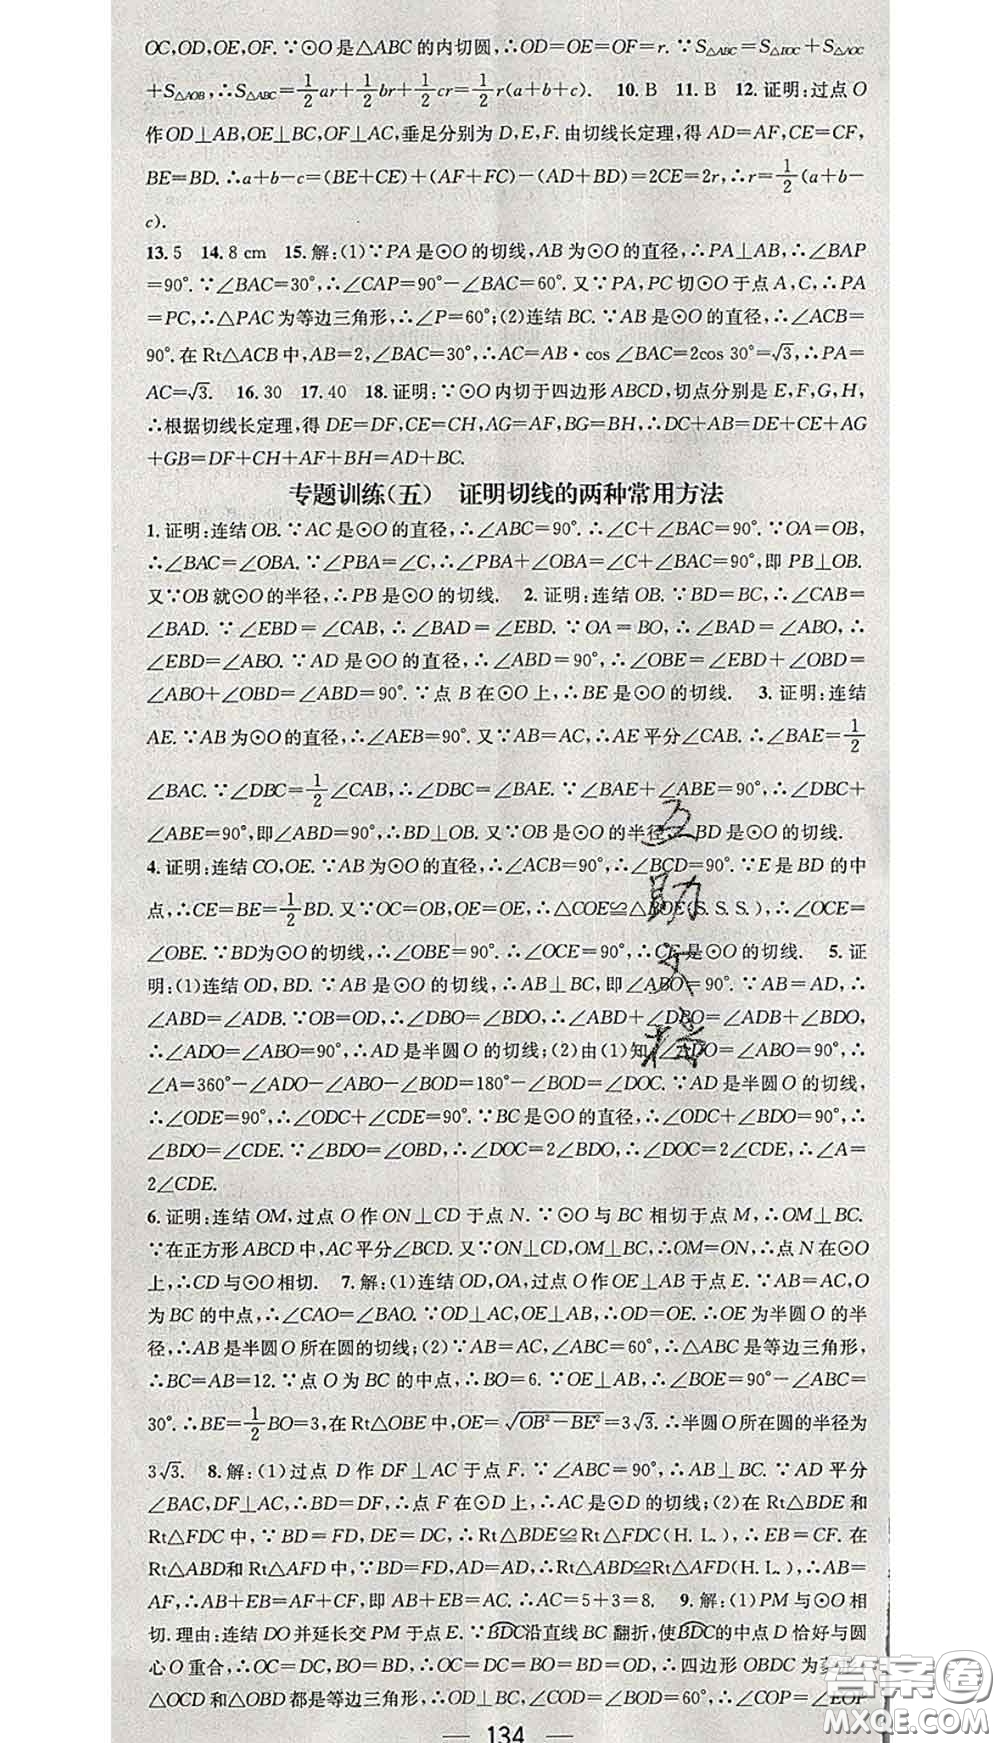 OC,OD,OE,OF.∵⊙O是△ABC的内切圆,∴OD=OE=OF=r.∵S△ABC=S△BOC+S△AOC
+S△AOB,∴S△ABC=1/2ar+1/2br+1/2cr=1/2r(a+b+c). 10.B 11.B 12.证明:过点O
作OD⊥AB,OE⊥BC,OF⊥AC,垂足分别为D,E,F.由切线长定理,得AD=AF,CE=CF,
BE=BD.∴a+b-c=(BE+CE)+(AF+FC)-(AD+BD)=2CE=2r,∴r=1/2(a+b-
c).
13.5 14.8 cm 15.解:(1)∵PA是⊙O的切线,AB为⊙O的直径,∴PA⊥AB,∴∠BAP
=90°.∵∠BAC=30°,∴∠CAP=90°-∠BAC=60°.又∵PA,PC切⊙O于点A,C,∴PA
=PC,∴△PAC为等边三角形,∴∠P=60°;(2)连结BC.∵AB是⊙O的直径,∴∠ACB=
90°.在Rt△ACB中,AB=2,∠BAC=30°,∴AC=AB·cos∠BAC=2cos 30°=√3,∴PA=
AC=√3. 16.30 17.40 18.证明:∵⊙O内切于四边形ABCD,切点分别是E,F,G,H,
∴根据切线长定理,得DE=DF,CE=CH,AG=AF,BG=BH,∴DC+AB=DE+CE+AG
+GB=DF+CH+AF+BH=AD+BC.
专题训练(五) 证明切线的两种常用方法
1.证明:连结OB.∵AC是⊙O的直径,∴∠ABC=90°,∴∠C+∠BAC=90°.∵OA=OB,
∴∠BAC=∠OBA.∵∠PBA=∠C,∴∠PBA+∠OBA=∠C+∠BAC=90°,即PB⊥OB.
又∵OB就⊙O的半径,∴PB是⊙O的切线. 2.证明:连结OB.∵BD=BC,∴∠CAB=
∠BAD.∵∠EBD=∠CAB,∴∠BAD=∠EBD.∵OA=BO,∴∠BAD=∠ABO,∴
∠EBD=∠ABO.∵AD是⊙O的直径,∴∠ABD=90°,∴∠OBE=∠EBD+∠OBD=
∠ABO+∠OBD=∠ABD=90°.∵点B在⊙O上,∴BE是⊙O的切线. 3.证明:连结
AE.∵AB为⊙O的直径,∴∠AEB=90°.又∵AB=AC,∴AE平分∠CAB.∴∠BAE=1/2
∠BAC.∵∠DBC=1/2∠CAB,∴∠DBC=∠BAE.∵∠BAE+∠ABE=90°,∴∠DBC+
∠ABE=90°,即∠ABD=90°,∴BD⊥OB.又∵OB是⊙O的半径,∴BD是⊙O的切线.
4.证明:连结CO,OE.∵AB为⊙O的直径,∴∠ACB=90°,∴∠BCD=90°.∵E是BD的中
点,∴CE=BE=1/2BD.又∵OC=OB,OE=OE,∴△COE≌△BOE(S.S.S.),∴∠OCE=
∠OBE.∵BD为⊙O的切线,∴∠OBE=90°,∴∠OCE=90°,∴CE是⊙O的切线. 5.证
明:(1)连结OD,BD.∵AB是⊙O的切线,∴AB⊥BC,即∠ABO=90°.∵AB=AD,∴
∠ABD=∠ADB.∵OB=OD,∴∠DBO=∠BDO,∴∠ABD+∠DBO=∠ADB+∠BDO,
∴∠ADO=∠ABO=90°,∴AD是半圆O的切线;(2)由(1)知,∠ADO=∠ABO=90°,∴
∠A=360°-∠ADO-∠ABO-∠BOD=180°-∠BOD=∠DOC.∵AD是半圆O的切线,
∴∠ODE=90°,∴∠ODC+∠CDE=90°.∵BC是⊙O的直径,∴∠ODC+∠BDO=90°,∴
∠BDO=∠CDE.∵∠BDO=∠OBD,∴∠DOC=2∠BDO,∴∠DOC=2∠CDE,∴∠A=
2∠CDE.
6.证明:连结OM,过点O作ON⊥CD于点N.∵⊙O与BC相切于点M,∴OM⊥BC.
∵在正方形ABCD中,AC平分∠BCD.又∵ON⊥CD,OM⊥BC,∴OM=ON,∴点N在⊙O
上,∴CD与⊙O相切. 7.解:(1)连结OD,OA,过点O作OE⊥AB于点E.∵AB=AC,O
为BC的中点,∴∠CAO=∠BAO.∵OD⊥AC,OE⊥AB,∴OD=OE.∴OE为半圆O的半
径,∴AB是半圆O所在圆的切线;(2)∵AB=AC,∠CAB=60°,∴△ABC是等边三角形,
∴BC=AB=12.∵点O为BC的中点,∴BO=6.∵OE⊥AB,∴∠BOE=90°-∠ABC=
30°.∴BE=1/2BO=3,在Rt△OBE中,OE=√(OB²-BE²)=3√3.∴半圆O所在圆的半径为
3√3. 8.解:(1)过点D作DF⊥AC于点F.∵∠ABC=90°,∴AB⊥BC.∵AD平分
∠BAC,DF⊥AC,∴BD=DF,∴点F在⊙D上,∴AC是⊙D的切线;(2)在Rt△BDE和
Rt△FDC中,∵BD=FD,DE=DC,∴Rt△BDE≌Rt△FDC(H.L.),∴EB=CF.在
Rt△ABD和Rt△AFD中,∵BD=FD,AD=AD,∴Rt△ABD≌Rt△AFD(H.L.),∴AB=
AF,∴AB+EB=AF+CF,即AB+EB=AC,∴AC=5+3=8. 9.解:(1)PM与⊙O相
切.理由:连结DO并延长交PM于点E.∵BDC沿直线BC翻折,使BDC的中点D恰好与圆
心O重合,∴OC=DC,BO=BD,∴OC=DC=BO=BD,∴四边形OBDC为菱形,
△OCD和△OBD都是等边三角形,∴OD⊥BC,∠COD=∠BOD=60°,∴∠COP=∠EOP
134
互助文档
答案圈
MXQE.COM